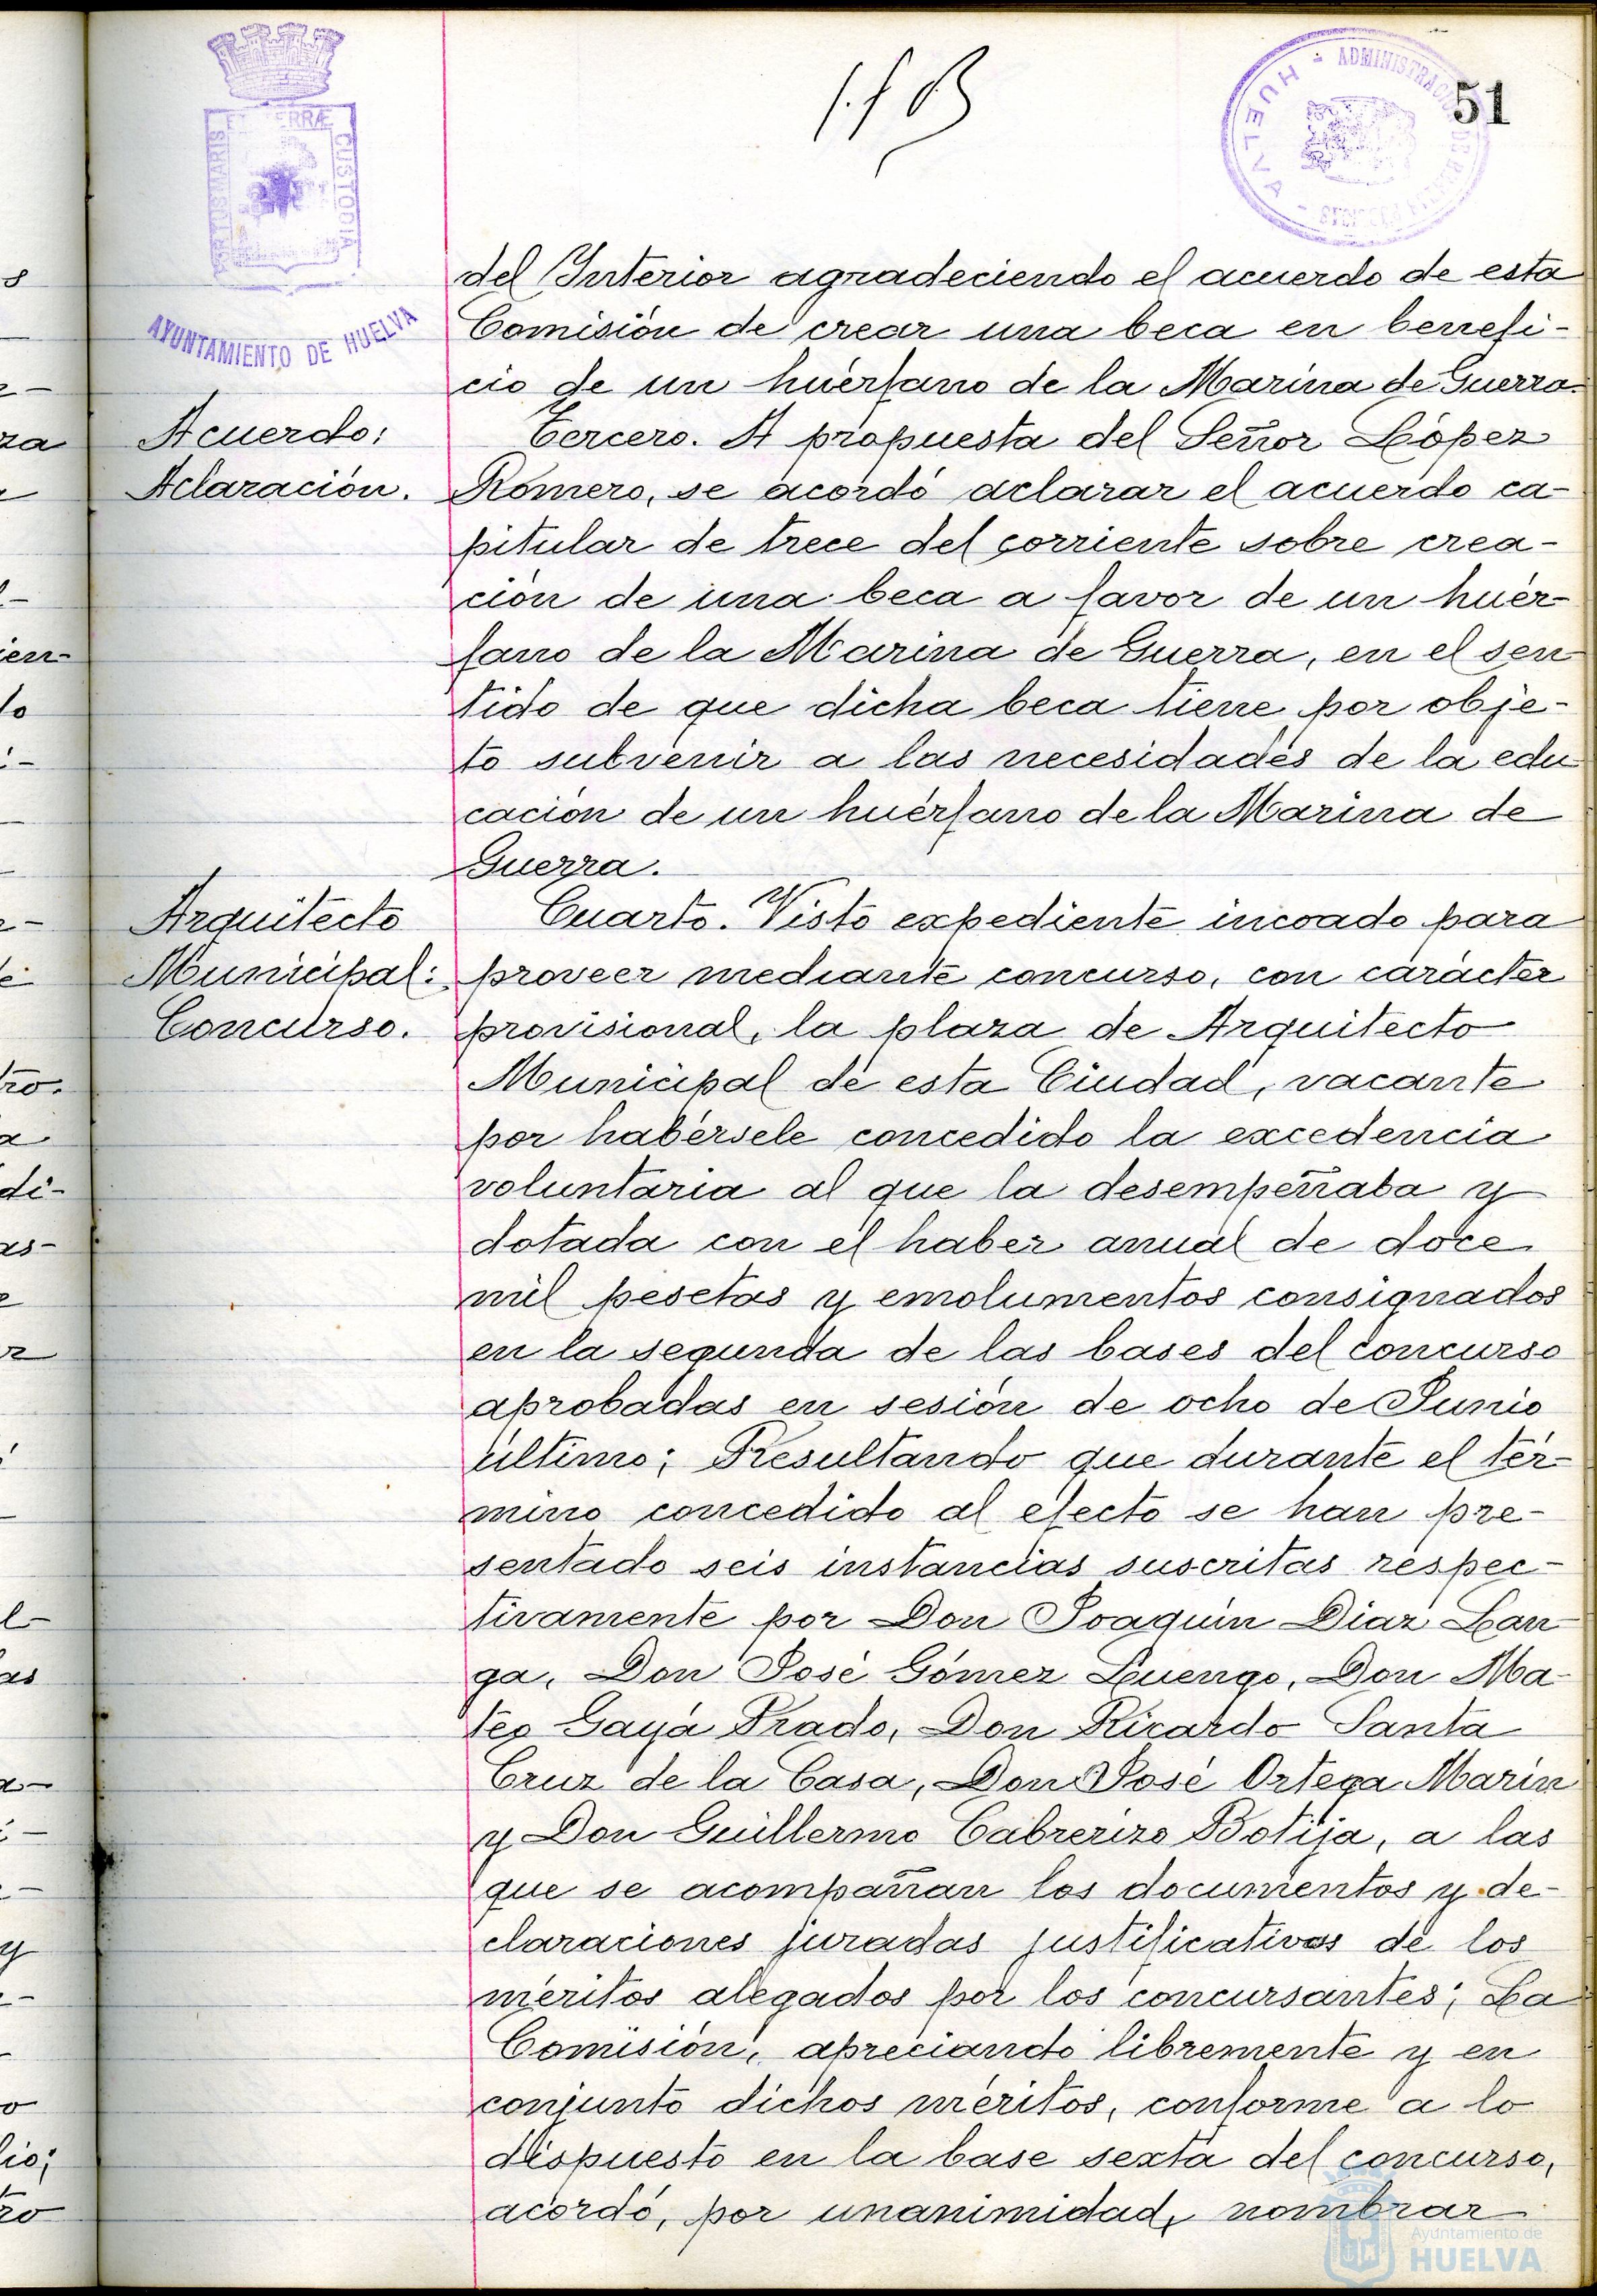 51
PORTUS MARIS ET TERRÆ CUSTODIA
AYUNTAMIENTO DE HUELVA
HUELVA - ADMINISTRACION DE
del Interior agradeciendo el acuerdo de esta
Comisión de crear una beca en benefi-
cio de un huérfano de la Marina de Guerra.
Acuerdo:
Aclaración.
Tercero. A propuesta del Señor López
Romero, se acordó aclarar el acuerdo ca-
pitular de trece del corriente sobre crea-
ción de una beca a favor de un huér-
fano de la Marina de Guerra, en el sen
tido de que dicha beca tiene por obje-
to subvenir a las necesidades de la edu
cación de un huérfano de la Marina de
Guerra.
Arquitecto
Municipal:
Concurso.
Cuarto. Visto expediente incoado para
proveer mediante concurso, con carácter
provisional, la plaza de Arquitecto
Municipal de esta Ciudad, vacante
por habérsele concedido la excedencia
voluntaria al que la desempeñaba y
dotada con el haber anual de doce
mil pesetas y emolumentos consignados
en la segunda de las bases del concurso
aprobadas en sesión de ocho de Junio
último; Resultando que durante el tér-
mino concedido al efecto se han pre-
sentado seis instancias suscritas respec-
tivamente por Don Joaquín Díaz Lan-
ga, Don José Gómez Luengo, Don Ma-
teo Gayá Prado, Don Ricardo Santa
Cruz de la Casa, Don José Ortega Marín
y Don Guillermo Cabrerizo Botija, a las
que se acompañan los documentos y de-
claraciones juradas justificativos de los
méritos alegados por los concursantes; La
Comisión, apreciando libremente y en
conjunto dichos méritos, conforme a lo
dispuesto en la base sexta del concurso,
acordó, por unanimidad, nombrar
Ayuntamiento de
HUELVA